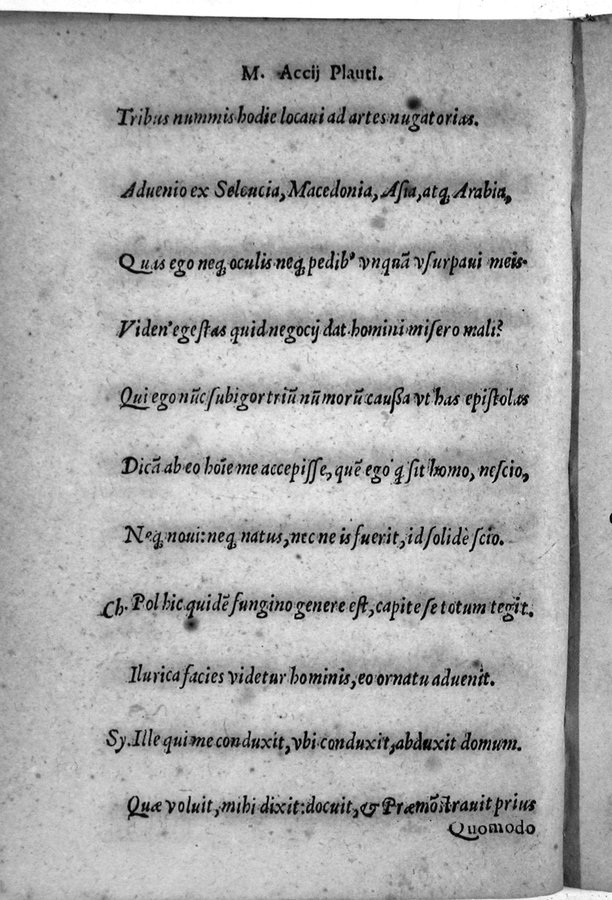 M. Accij Plauti.
Tribus nummis hodie locaui ad artes nugatorias.
Aduenio ex Seleucia, Macedonia, Asia, atq́; Arabia,
Quas ego neq; oculis neq; pedib᾽ vnquā vsurpaui meis.
Viden' egestas quid negocij dat homini misero mali?
Qui ego nūc subigor triū nūmorū caußa vt has epistolas
Dicā ab eo hoīe me accepisse, quē ego q̨ sit homo, nescio,
Neq; noui: neq; natus, nec ne is fuerit, id solidè scio.
Ch. Pol hic quidē fungino genere est, capite se totum tegit.
Ilurica facies videtur hominis, eo ornatu aduenit.
Sy. Ille qui me conduxit, vbi conduxit, abduxit domum.
Quæ voluit, mihi dixit: docuit, & Præmōstrauit prius
Quomodo